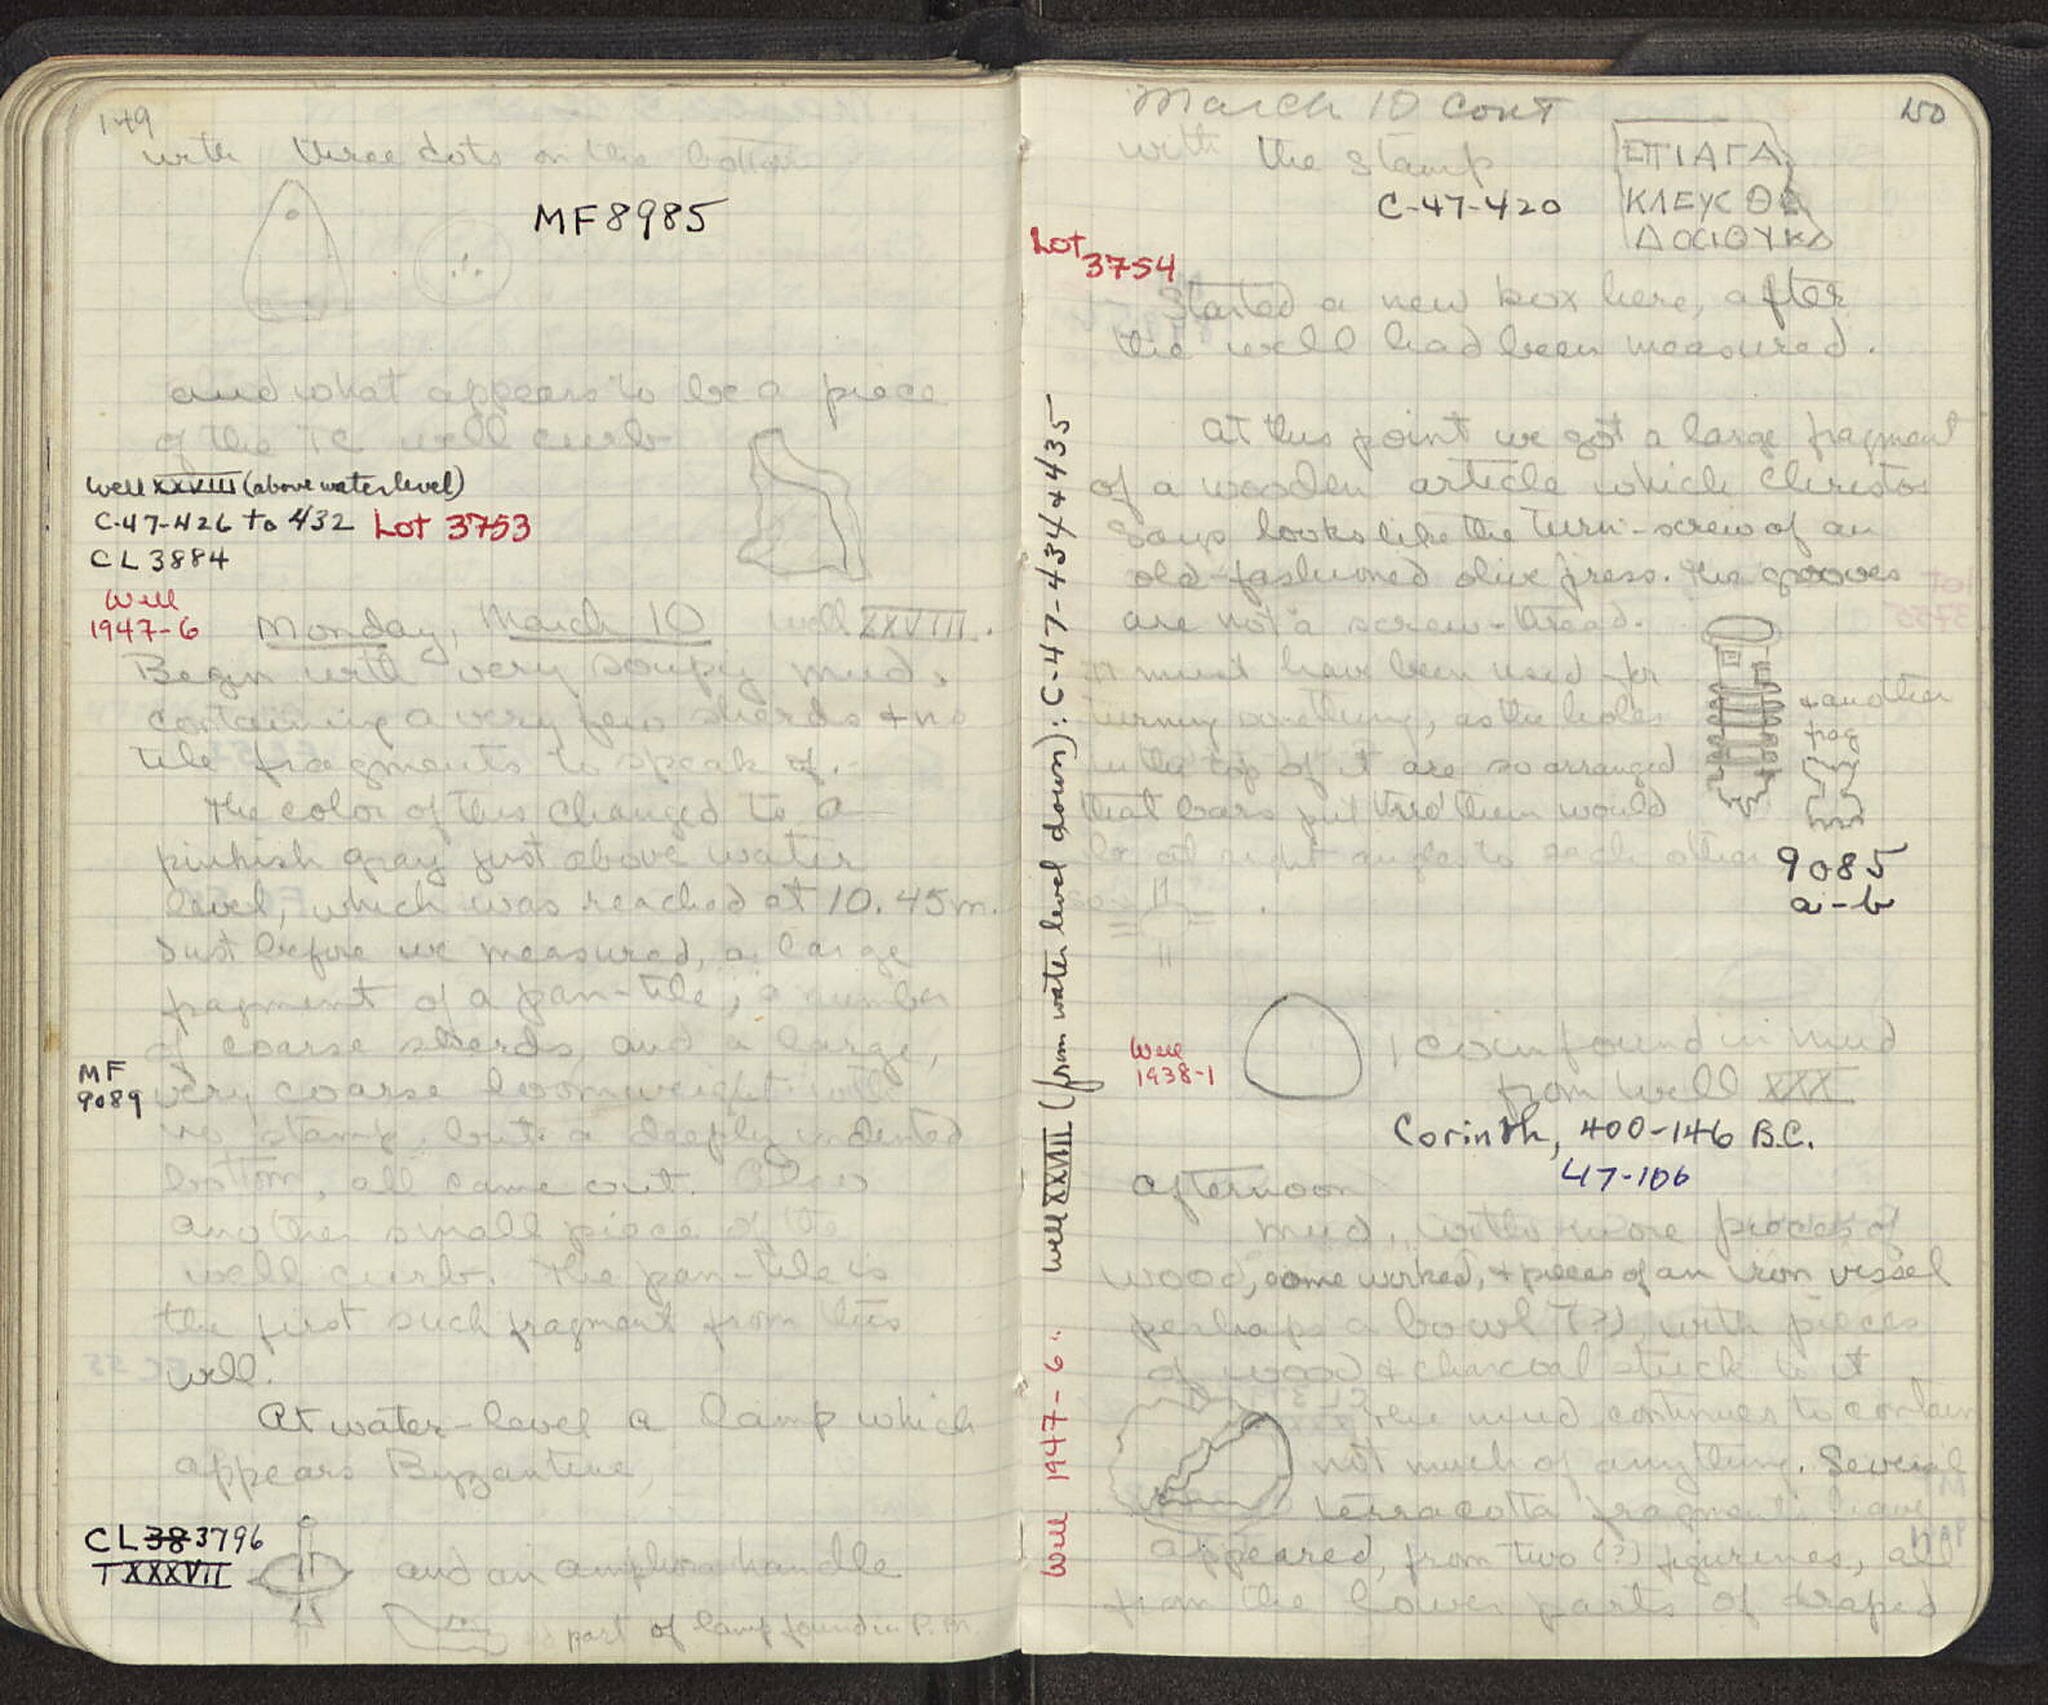 149
with three dots on the bottom
MF 8985
and what appears to be a piece
of the TC well curb
Well XXVIII (above water level)
C-47-426 to 432 Lot 3753
CL 3884
Well
1947-6
Monday, March 10 Well XXVIII.
Begin with very soupy mud,
containing a very few sherds + no
tile fragments to speak of.
The color of this changed to a
pinkish gray just above water
level, which was reached at 10.45m.
Just before we measured, a large
fragment of a pan-tile, a number
of coarse sherds and a large,
MF
9089
very coarse loomweight with
no stamp, but a deeply indented
bottom, all came out. Also
another small piece of the
well curb. The pan-tile is
the first such fragment from this
well.
At water-level a lamp which
appears Byzantine,
CL 38 3796
T XXXVII
and an amphora handle
part of lamp found in P.M.
March 10 cont
150
with the stamp
C-47-420
ΕΠΙΑΓΑ
ΚΛΕΥΣ ΘΕ
ΔΟCΙΘΥΚΔ
Lot
3754
Started a new box here, after
the well had been measured.
At this point we got a large fragment
of a wooden article which Christos
says looks like the turn-screw of an
old-fashioned olive press. The grooves
are not a screw-thread.
It must have been used for
turning something, as the holes
in the top of it are so arranged
that bars put thro' them would
be at right angles to each other
+ another
frag
9085
a-b
so
Well
1938-1
1 coin found in mud
from well XXX
Corinth, 400-146 B.C.
47-106
Afternoon
mud, with more pieces of
wood, some worked, + pieces of an iron vessel
perhaps a bowl (?), with pieces
of wood & charcoal stuck to it
The mud continues to contain
not much of anything. Several
terracotta fragments have
appeared, from two (?) figurines, all
from the lower parts of draped
Well 1947-6. Well XXVIII (from water level down): C-47-434 + 435